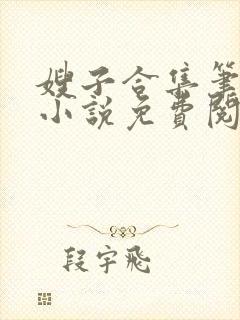 嫂子合集筆
小說免費閱
段宇飛